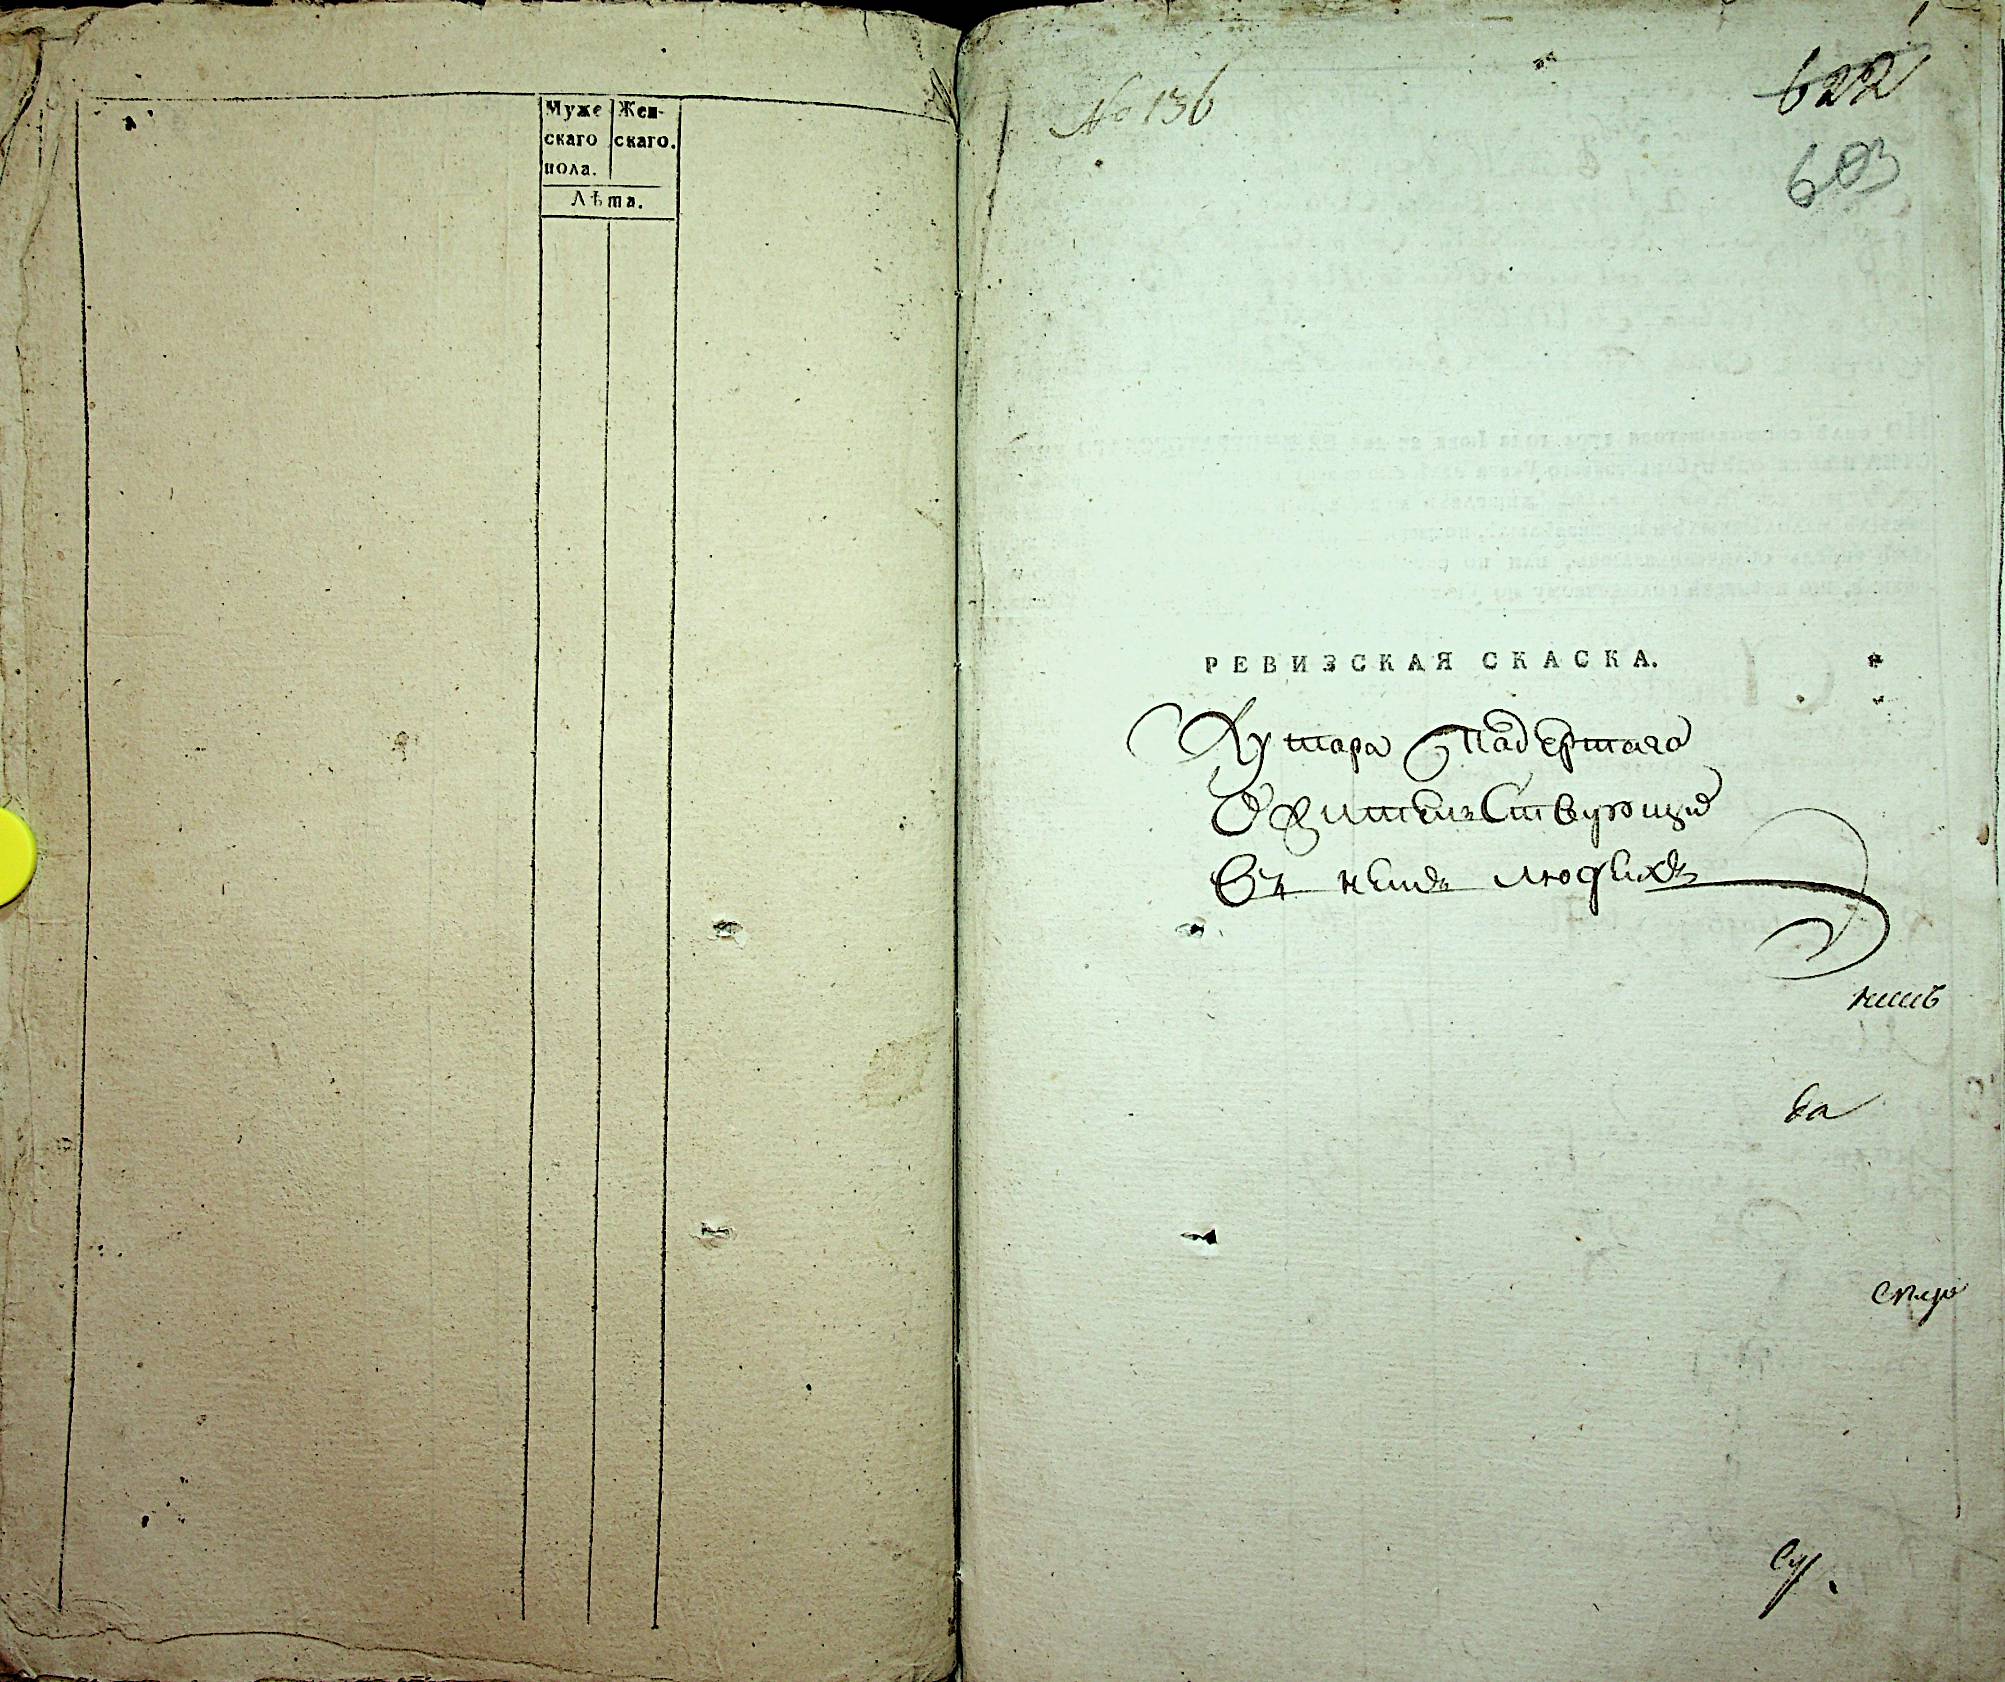 Муже
скаго
пола.
Жен-
скаго.
Лѣта.
№ 136
622
603
РЕВИЗСКАЯ СКАСКА.
Хутара Падертаго
О жителствующихъ
Въ немъ людехъ
нить
ва
су.